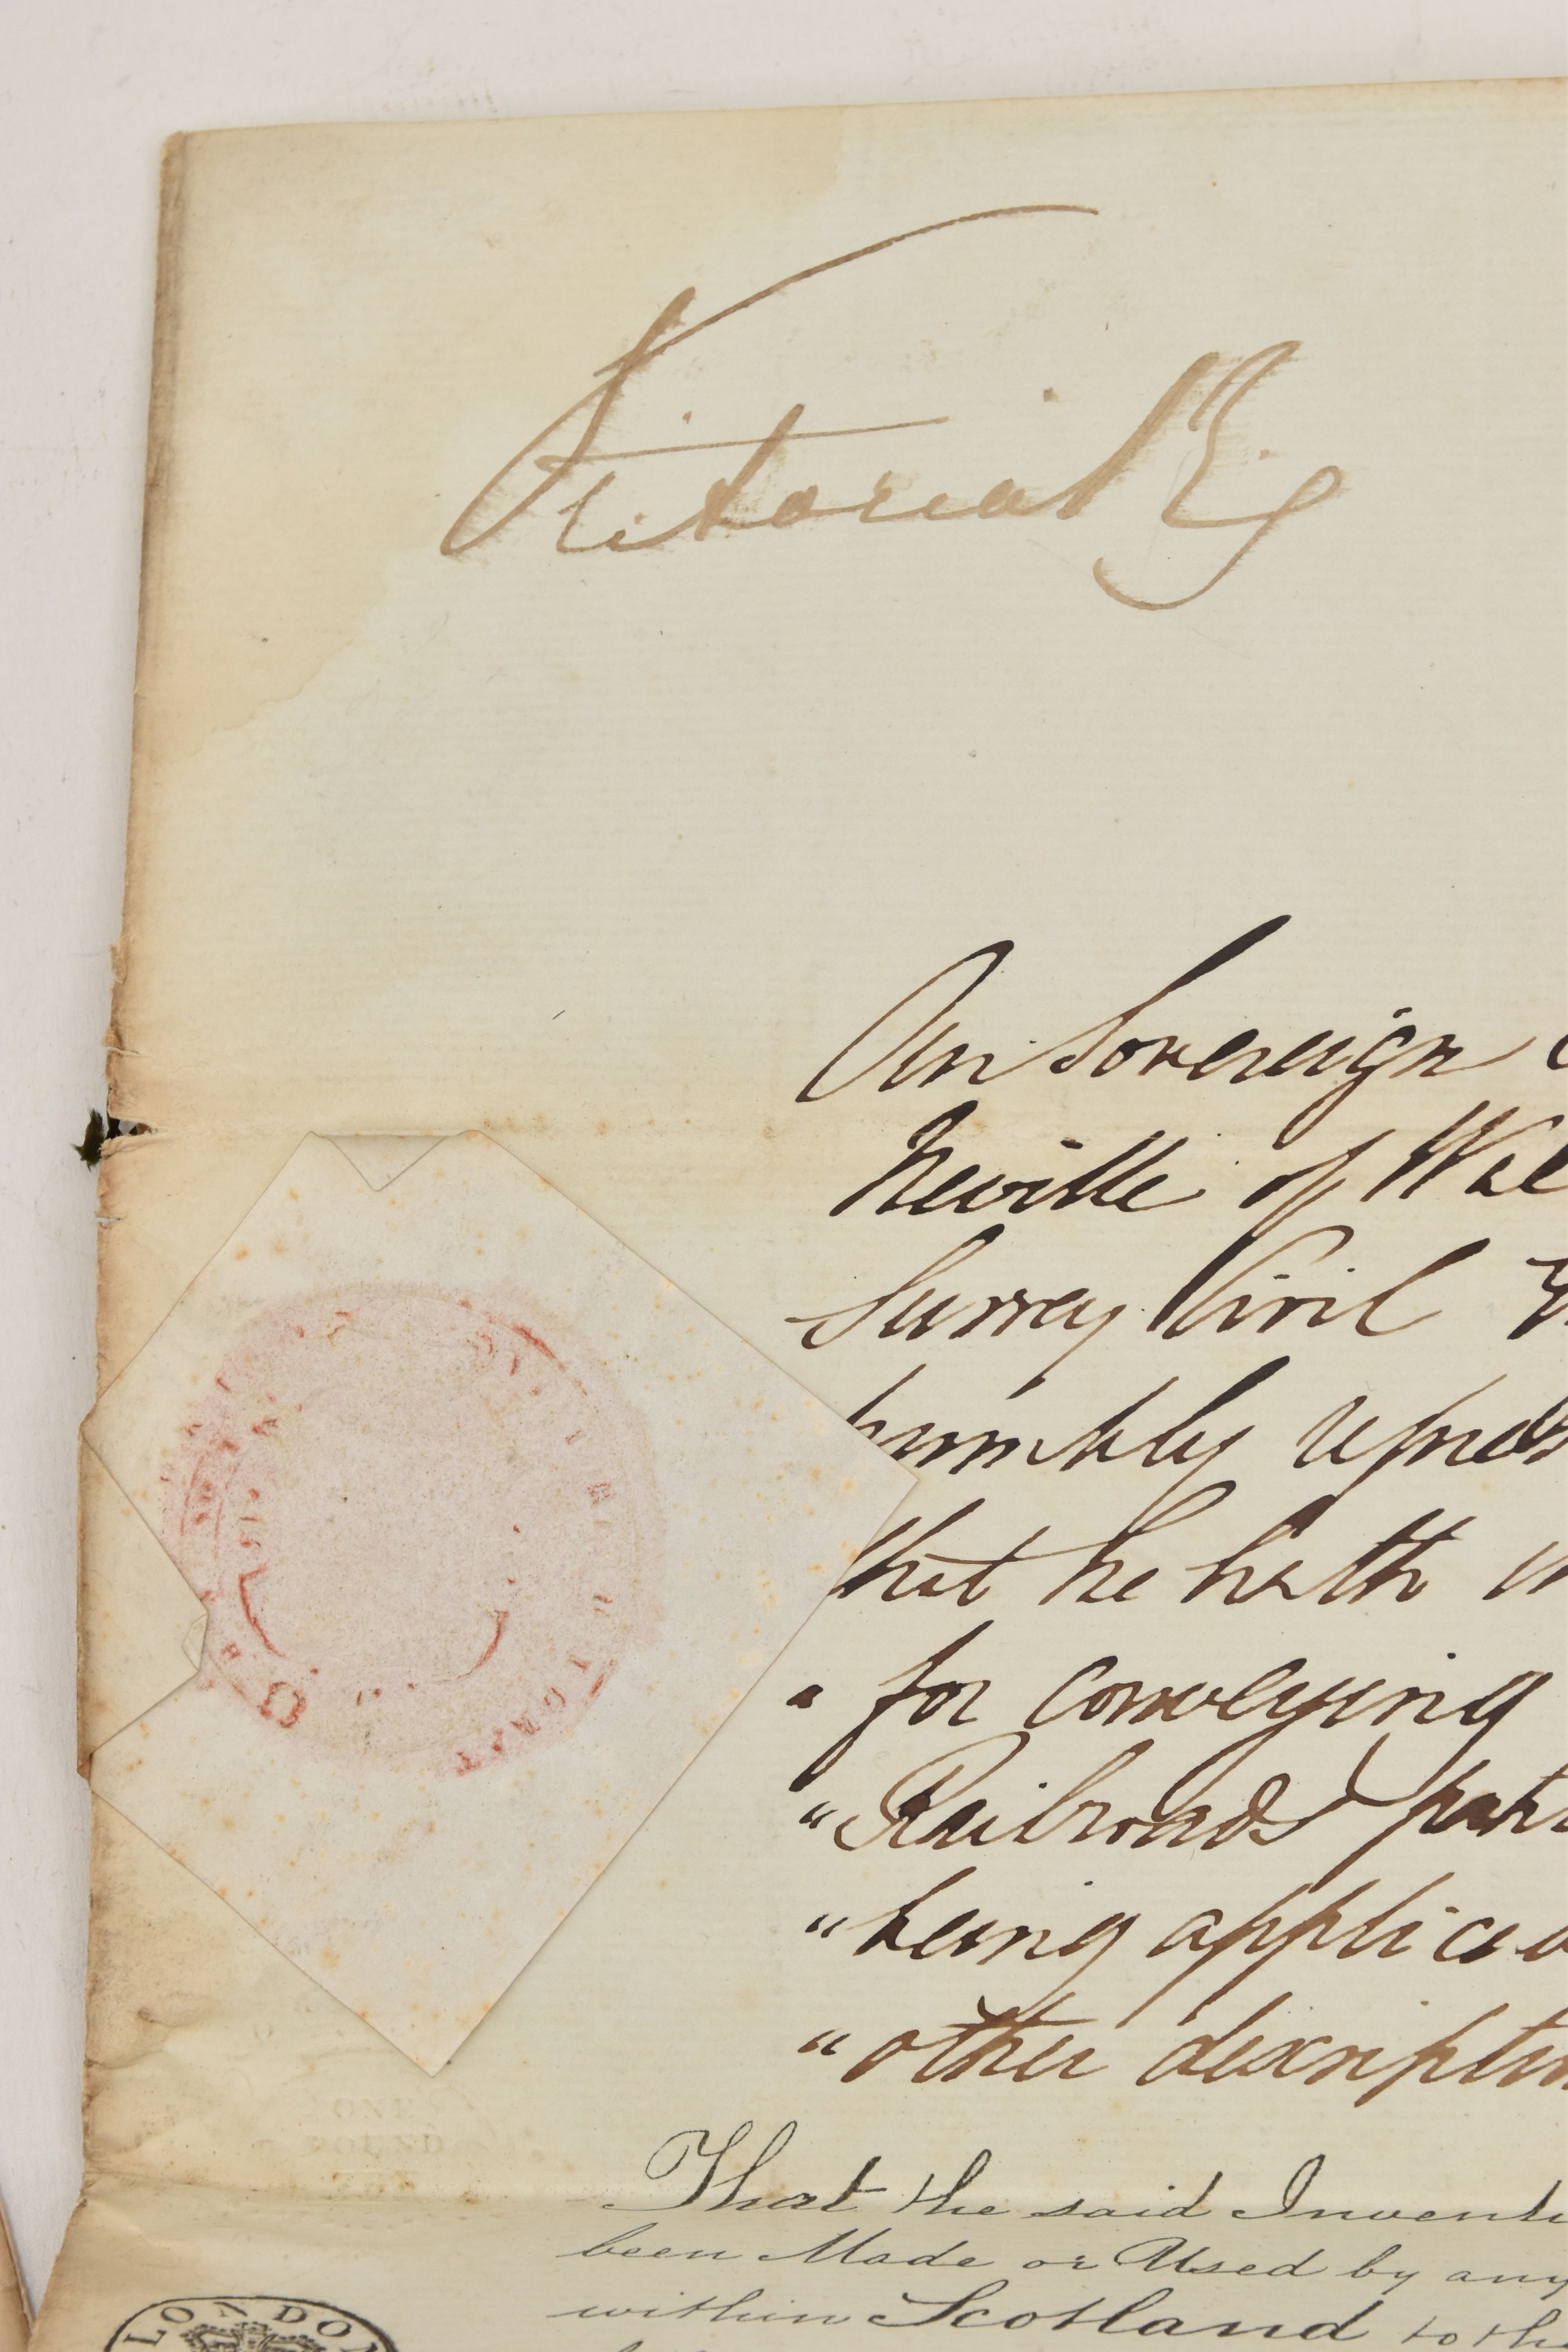 Victoria R
Our Sovereign
Neville of Wal
Surrey Civil
humbly
that he hath in
" for conveying
" Railroads part
" being applica
" other description
That the said Inventi
been Made or Used by any
within Scotland to thi
LONDON